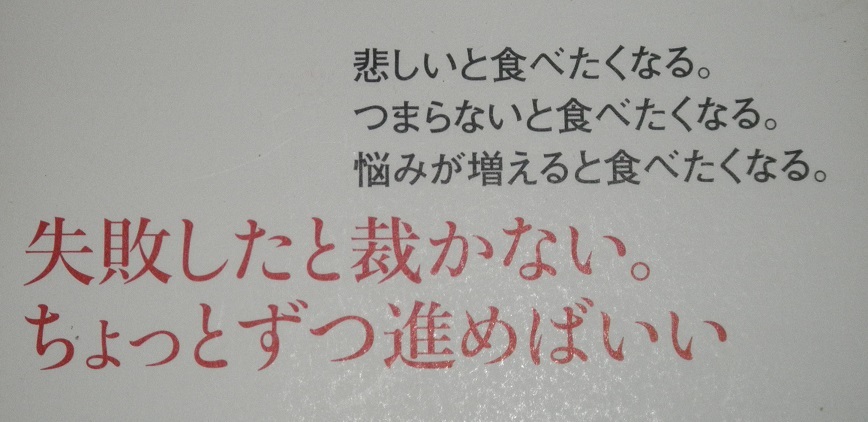 悲しいと食べたくなる。
つまらないと食べたくなる。
悩みが増えると食べたくなる。
失敗したと裁かない。
ちょっとずつ進めばいい